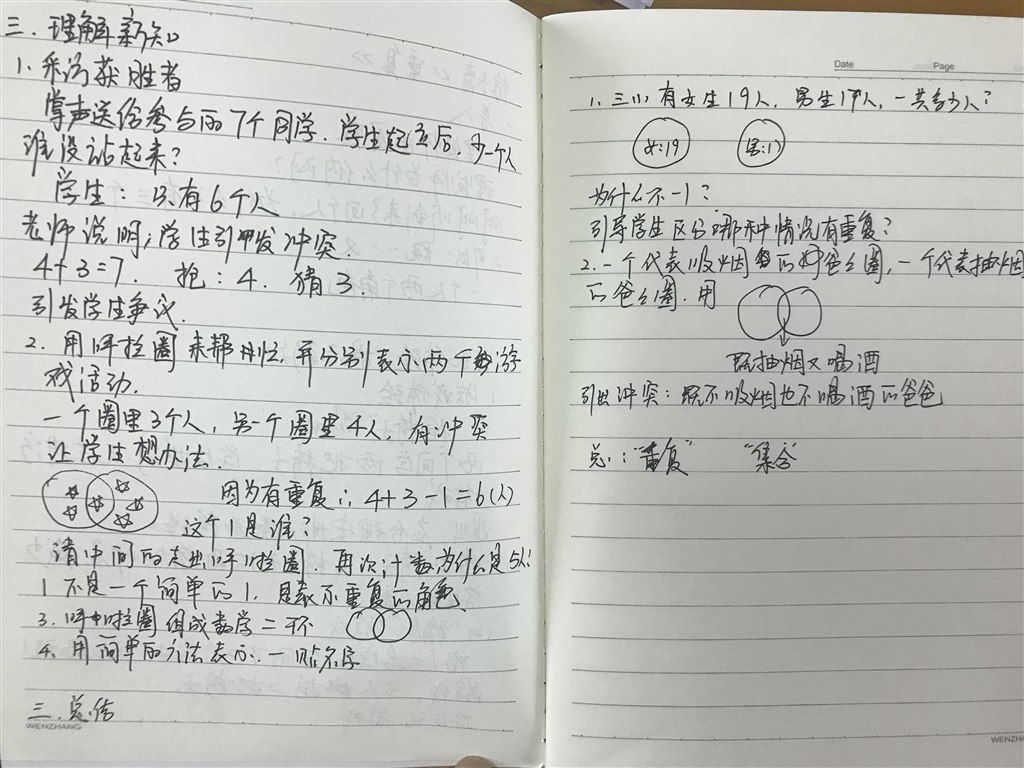 三.理解新知
1.采访获胜者
掌声送给参与的7个同学.学生起立后,少一个人
谁没站起来?
学生:只有6个人
老师说明,学生引发冲突.
4+3=7. 抢:4. 猜3.
引发学生争议.
2.用呼拉圈来帮忙.并分别表示两个游
戏活动.
一个圈里3个人,另一个圈里4人,有冲突
让学生想办法.
因为有重复∴4+3-1=6(人)
这个1是谁?
请中间的走出呼啦圈.再次计数为什么是5人
1不是一个简单的1.是表示重复的角色.
3.呼啦圈组成数学二环
4.用简单的方法表示.一贴名字
三.总结
WENZHANG
Date Page
1.三(1)有女生19人,男生17人,一共多少人?
女:19 男:17
为什么不-1?
引导学生区分哪种情况有重复?
2.一个代表吸烟的爸爸圈,一个代表抽烟
的爸爸圈.用
既抽烟又喝酒
引出冲突:既不吸烟也不喝酒的爸爸
总:“重复” “集合”
WENZHA